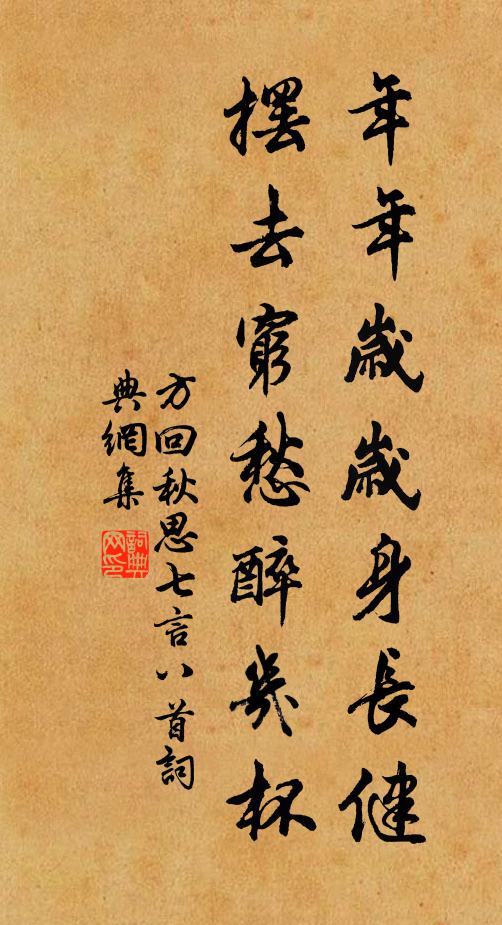 年年歲歲身長健
擺去窮愁醉幾杯
方回秋思七言八首詞
典網集
詞典網印